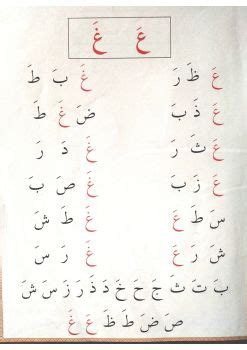 عَ غَ
عَ ظَ رَ غَ بَ طَ
عَ ذَ بَ ضَ غَ طَ
عَ ثَ رَ غَ دَ رَ
عَ زَ بَ غَ صَ بَ
سَ طَ عَ غَ طَ شَ
شَ رَ عَ غَ رَ سَ
بَ تَ ثَ جَ حَ خَ دَ ذَ رَ زَ سَ شَ
صَ ضَ طَ ظَ عَ غَ